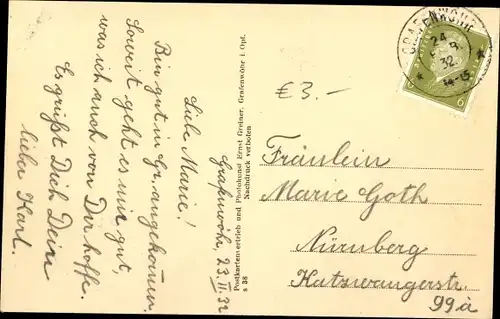 Grafenwöhr 23.II.32
Liebe Marie!
Bin gut in Gr. angekommen,
soweit geht es mir gut,
was ich auch von Dir hoffe.
Es grüßt Dich Dein
lieber Karl.
Postkartenvertrieb und Photokunst Ernst Greiner, Grafenwöhr i. Opf.
Nachdruck verboten
s 38
GRAFENWÖHR
24
32
14-15
6
€3.-
Fräulein
Marie Goth
Nürnberg
Katzwangerstr.
99a